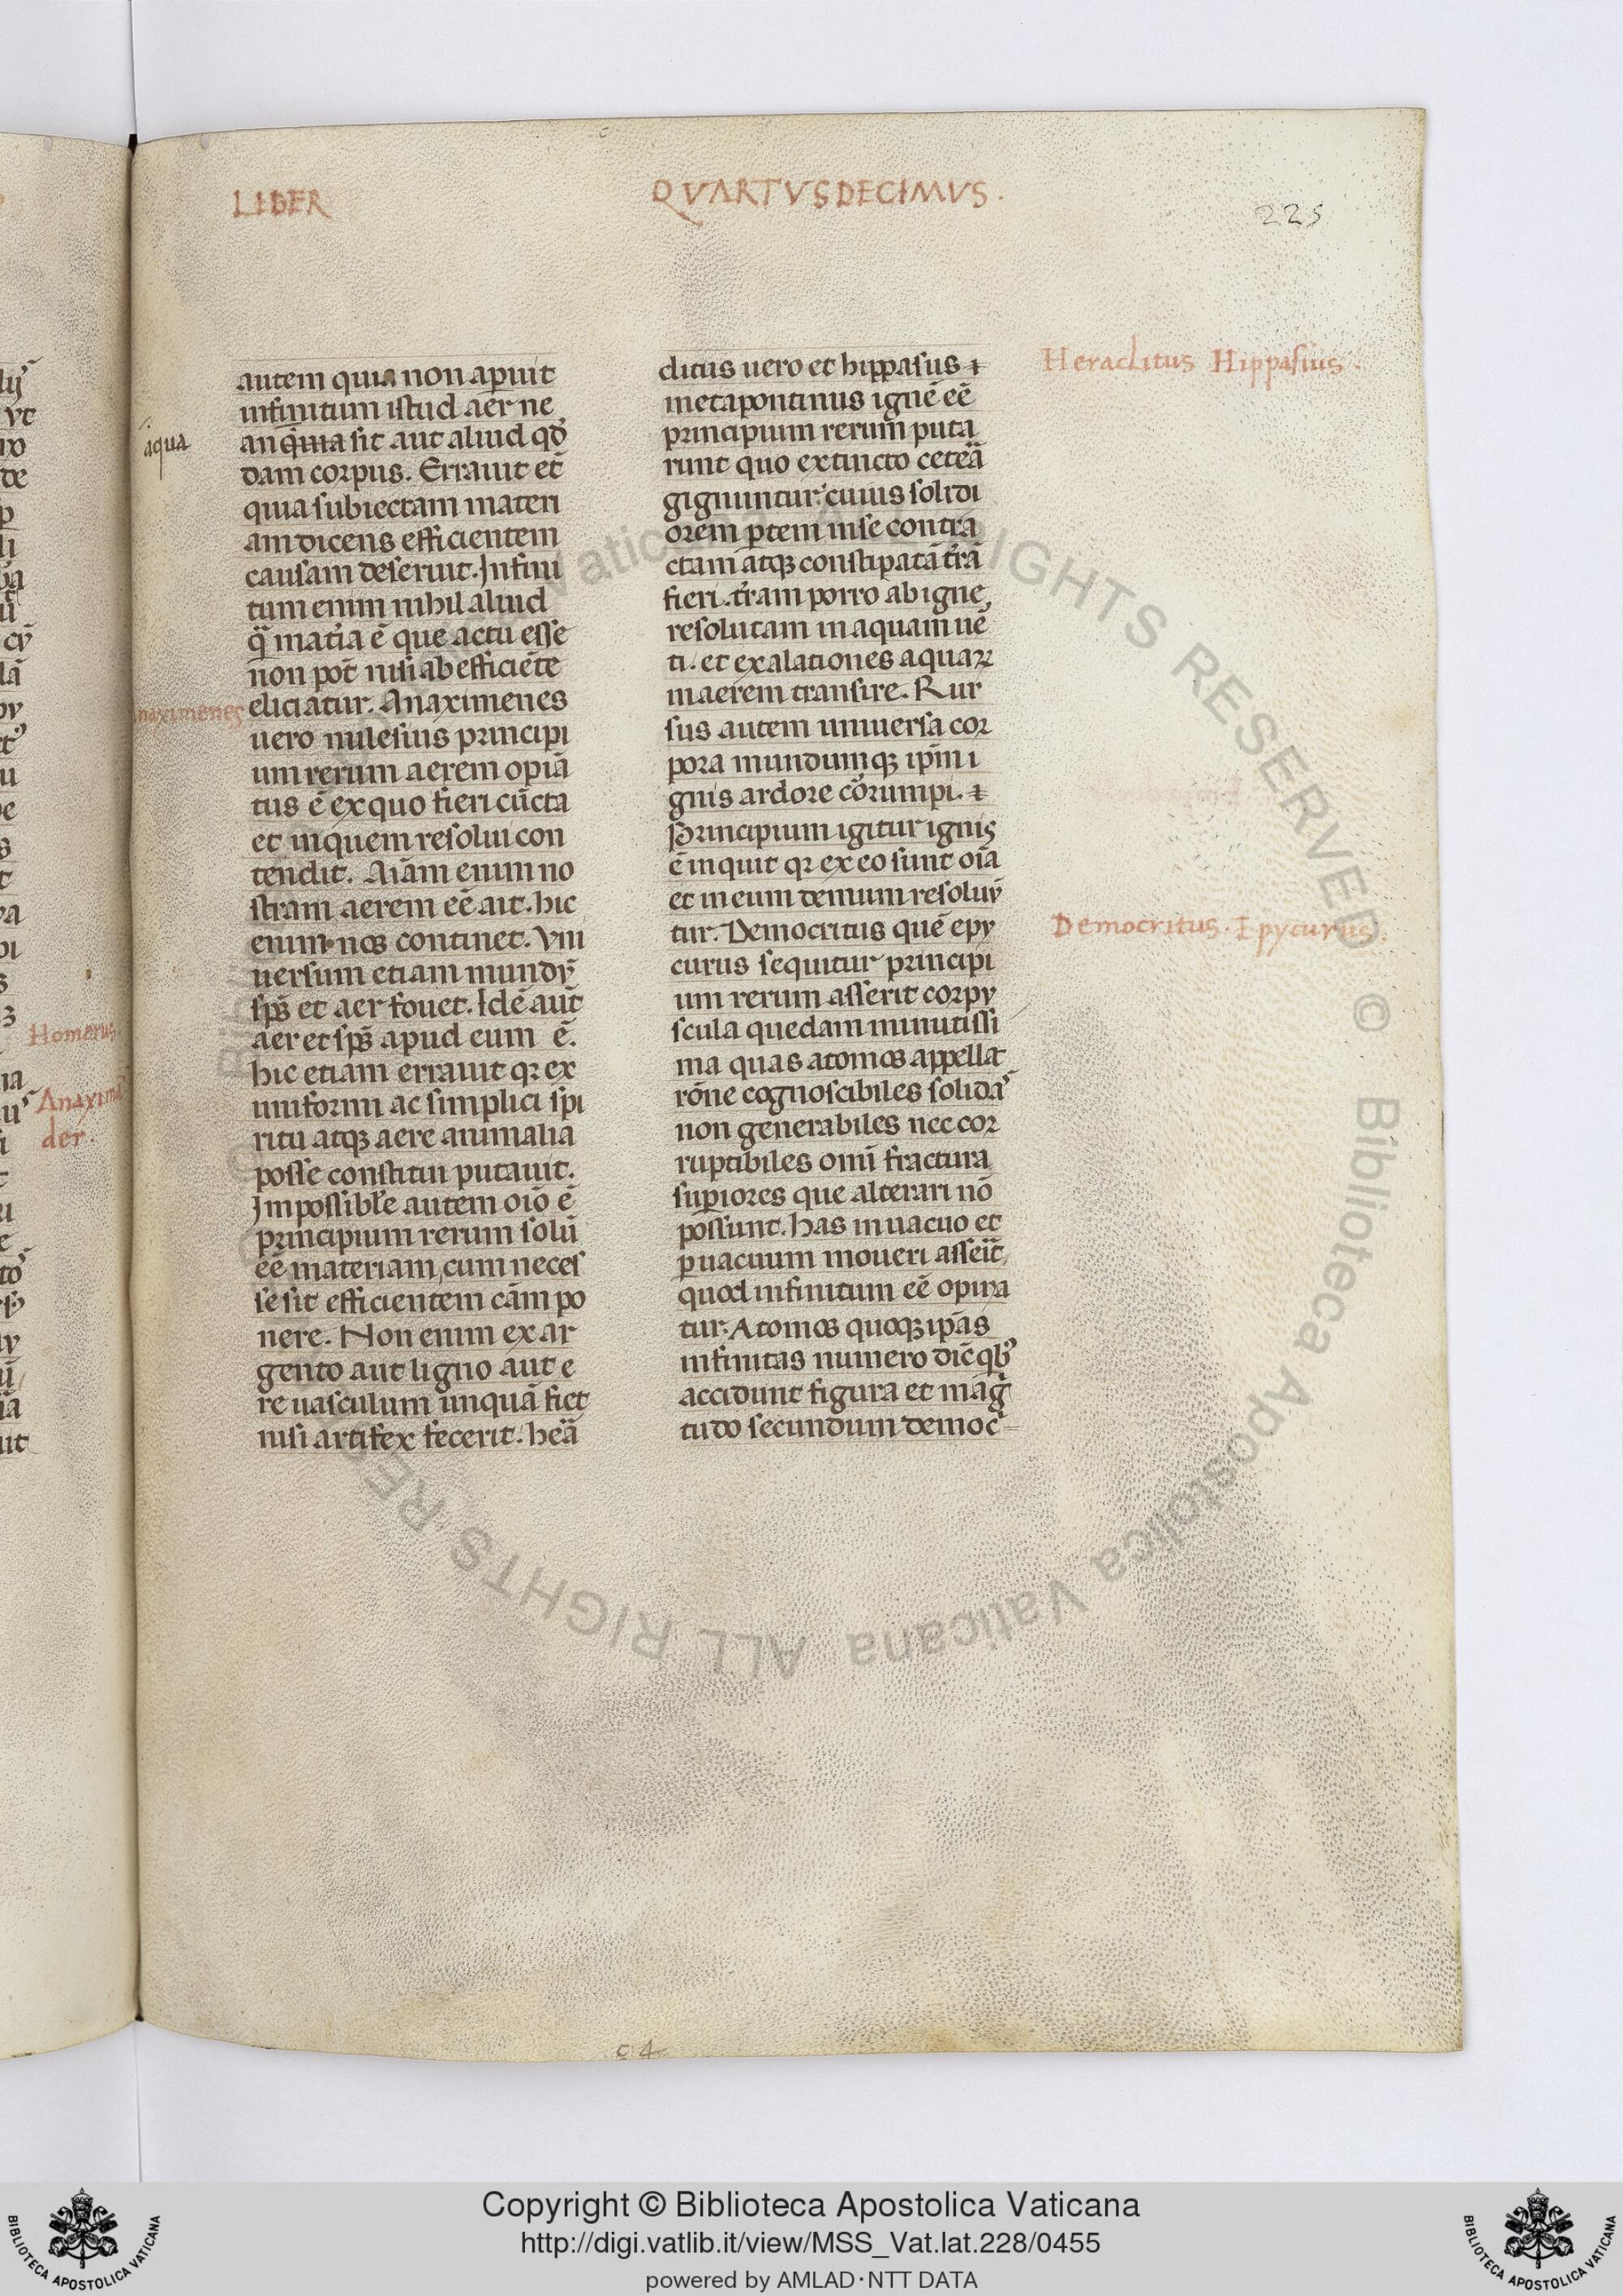 LIBER
QVARTVSDECIMVS.
225
autem quia non aperuit
infinitum istud aer ne
an q̃ma sit aut aliud qđ
aqua
dam corpus. Errauit et̃
quia subiectam materi
am dicens efficientem
causam deseruit. Infini
tum enim nihil aliud
q̃ mat̃ia ẽ que actu esse
non pot̃ nisi ab efficiẽte
eliciatur. Anaximenes
Anaximenes
uero milesius principi
um rerum aerem opiã
tus ẽ ex quo fieri cũcta
et in quem resolui con
tendit. Aĩam enim no
stram aerem eẽ ait. hic
enim nos continet. Vni
uersum etiam mundũ
sp̃s et aer fouet. Idẽ aut̃
aer et sp̃s apud eum ẽ.
hic etiam errauit qꝛ ex
uniformi ac simplici spi
ritu atqꝫ aere animalia
posse constitui putauit.
Impossibl̃e autem oĩo ẽ
principium rerum solũ
eẽ materiam, cum neces
se sit efficientem cãm po
nere. Non enim ex ar
gento aut ligno aut e
re uasculum unquã fiet
nisi artifex fecerit. heã
clitus uero et hippasus ⁊
Heraclitus Hippasius.
metapontinus ignẽ eẽ
principium rerum puta
runt quo extincto ceteã
gignuntur: cuius solidi
orem ꝑtem in se contra
ctam atqꝫ constipatã t̃rã
fieri. t̃ram porro ab igne
resolutam in aquam uẽ
ti. et exalationes aquaꝝ
in aerem transire. Rur
sus autem uniuersa cor
pora mundumqꝫ ip̃m i
gnis ardore corrumpi. ⁊
Principium igitur ignis
ẽ inquit qꝛ ex eo sunt oĩa
et in eum demum resoluũ
tur. Democritus quẽ epy
Democritus. Epycurus.
curus sequitur principi
um rerum asserit corpu
scula quedam minutissi
ma quas atomos appellat
rõne cognoscibiles solidas
non generabiles nec cor
ruptibiles omĩ fractura
suꝑiores que alterari nõ
possunt. has in uacuo et
ꝑ uacuum moueri asserit
quod infinitum eẽ opina
tur. Atomos quoqꝫ ip̃as
infinitas numero dic̃ qbꝰ
accidunt figura et mag̃
tudo secundum democ̃
Homerus
Anaxima
der.
54
Copyright © Biblioteca Apostolica Vaticana
http://digi.vatlib.it/view/MSS_Vat.lat.228/0455
powered by AMLAD·NTT DATA
BIBLIOTECA APOSTOLICA VATICANA
BIBLIOTECA APOSTOLICA VATICANA
© Biblioteca Apostolica Vaticana ALL RIGHTS RESERVED